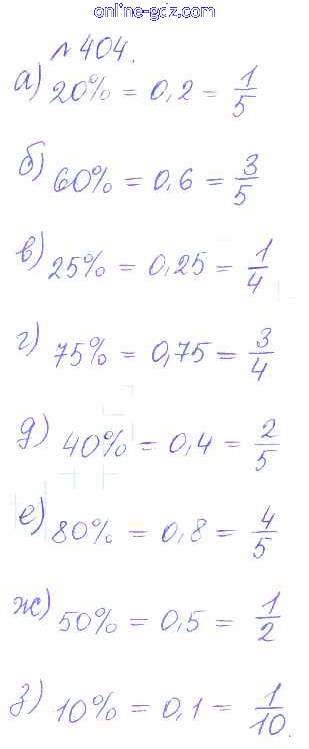 online-gdz.com
№ 404.
а) 20% = 0,2 = 1/5
б) 60% = 0,6 = 3/5
в) 25% = 0,25 = 1/4
г) 75% = 0,75 = 3/4
д) 40% = 0,4 = 2/5
е) 80% = 0,8 = 4/5
ж) 50% = 0,5 = 1/2
з) 10% = 0,1 = 1/10.